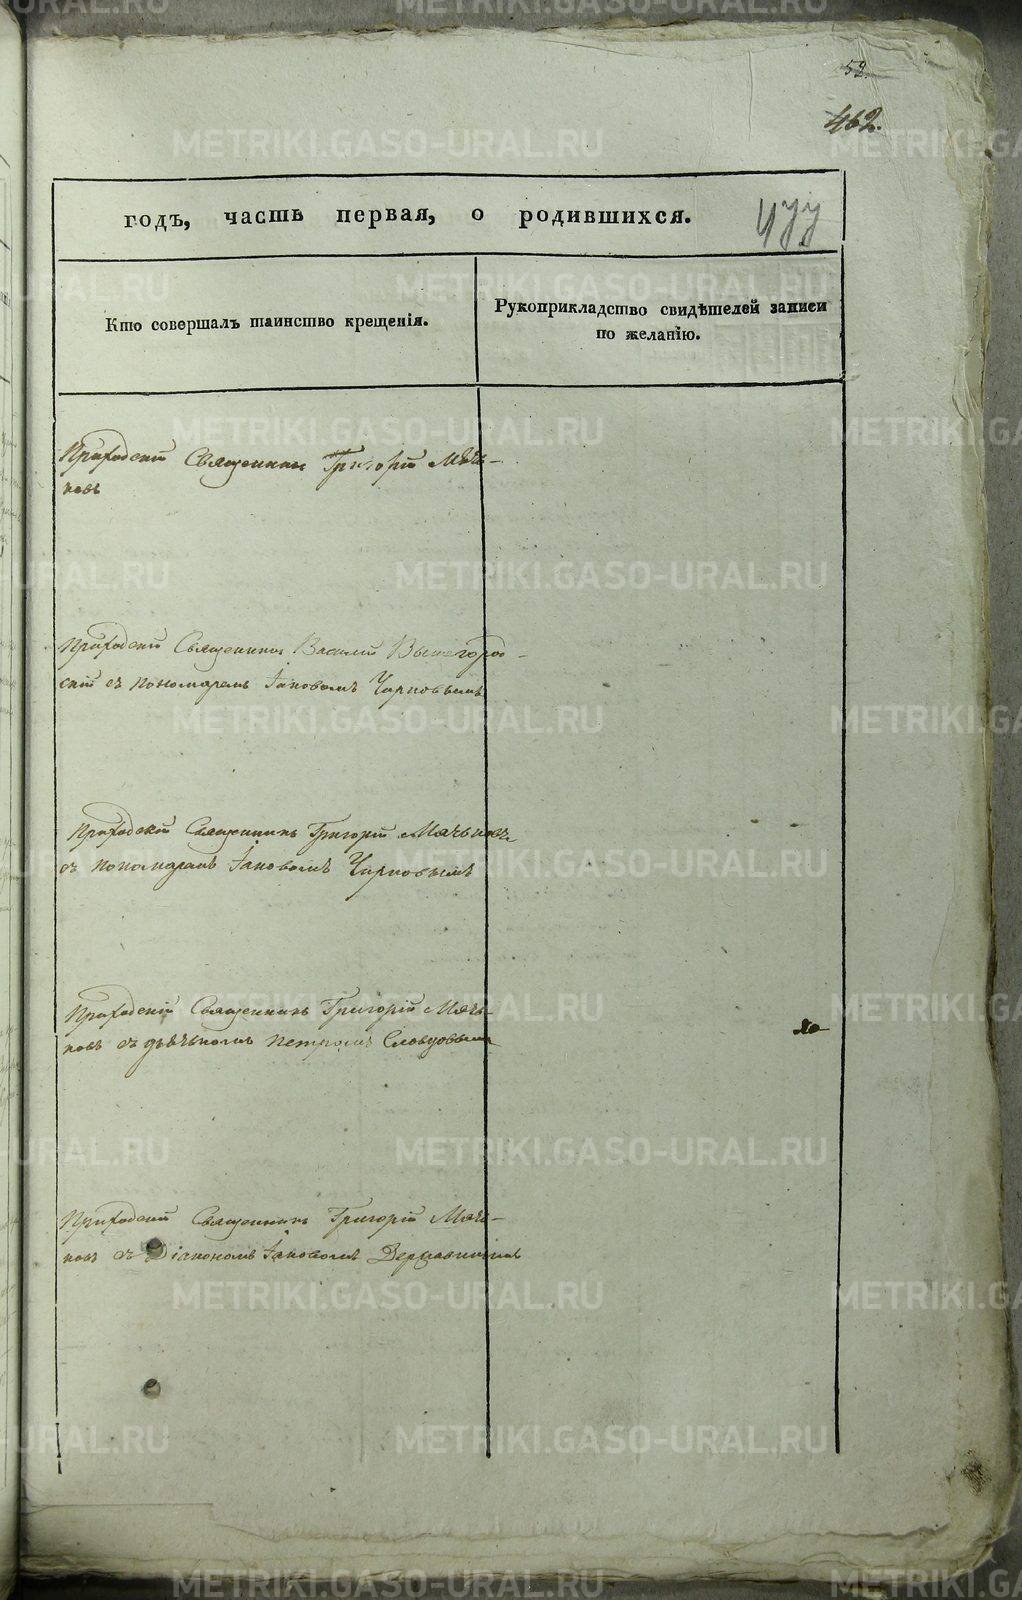 52.
462.
годъ, часть первая, о родившихся.
477
Кто совершалъ таинство крещенія.
Рукоприкладство свидѣтелей записи
по желанію.
Приходскій Священникъ Григорій Мячь-
ковъ
Приходскій Священникъ Василій Вышегород-
скій съ пономаремъ Іаковомъ Чирковымъ
Приходскій Священникъ Григорій Мячьковъ
съ пономаремъ Іаковомъ Чирковымъ
Приходскій Священникъ Григорій Мячь-
ковъ съ дьячькомъ Петромъ Словцовымъ
Приходскій Священникъ Григорій Мячь-
ковъ съ Діакономъ Іаковомъ
METRIKI.GASO-URAL.RU